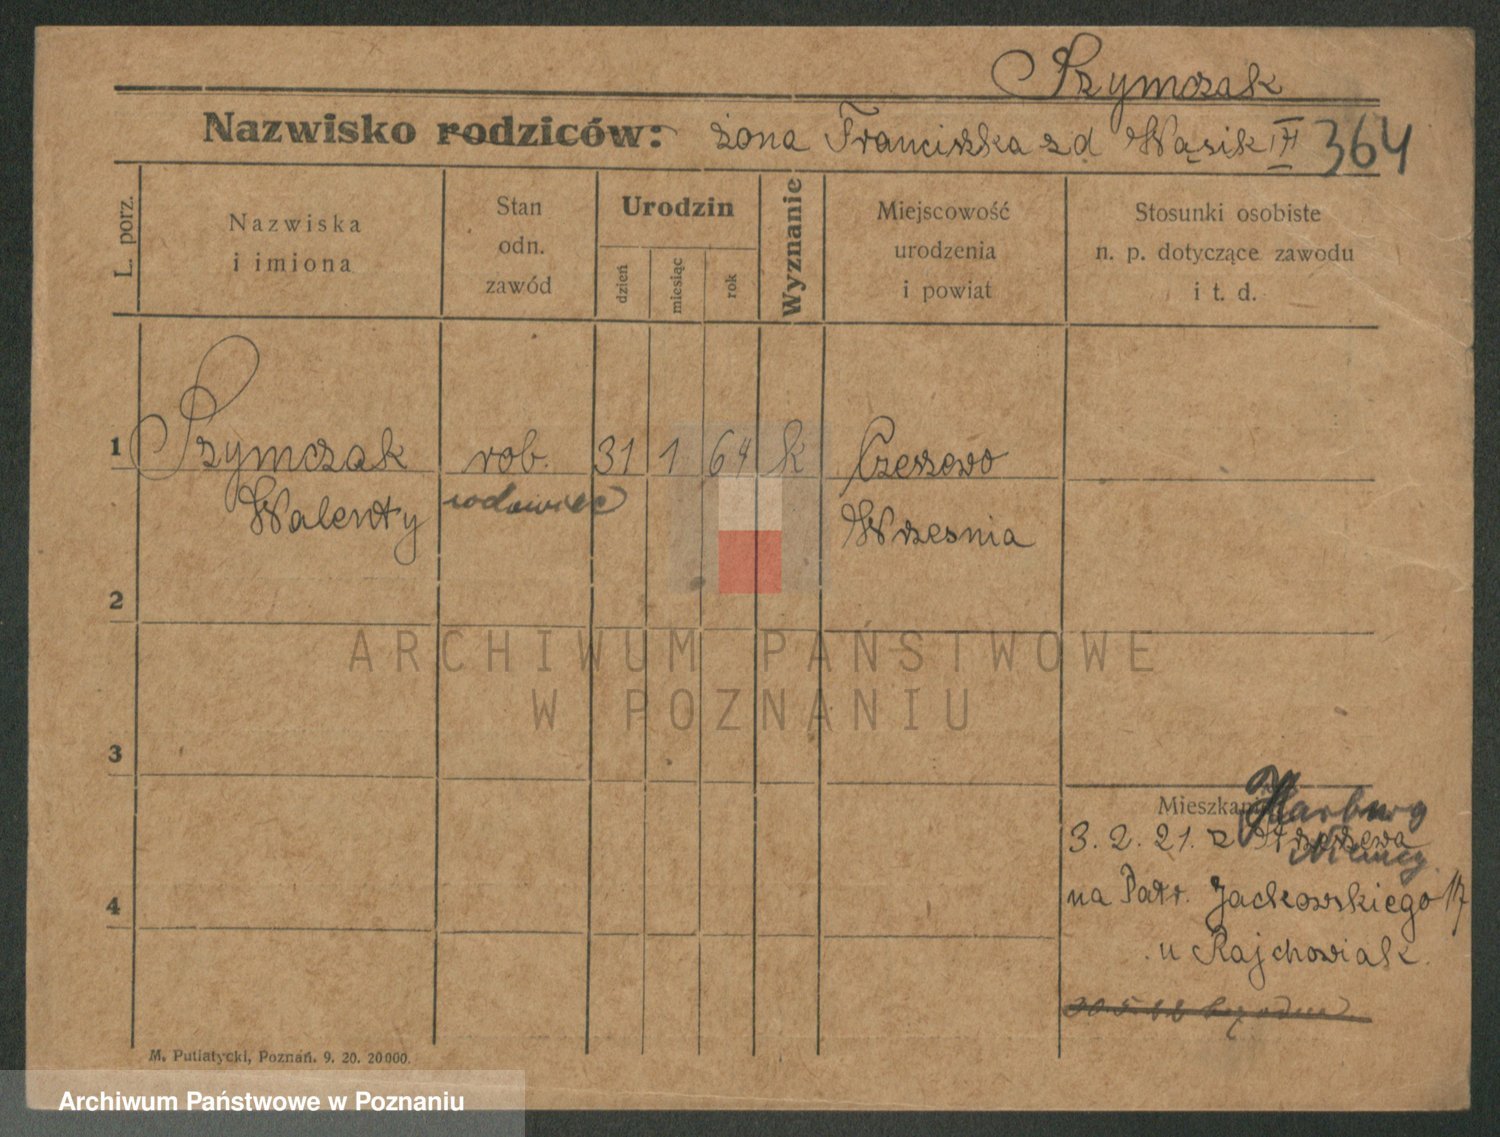 Szymczak
Nazwisko rodziców: żona Franciszka z d Wąsik 364
L. porz.
Nazwiska
i imiona
Stan
odn.
zawód
Urodzin
dzień
miesiąc
rok
Wyznanie
Miejscowość
urodzenia
i powiat
Stosunki osobiste
n. p. dotyczące zawodu
i t. d.
1 Szymczak rob. 31 1 64 k Czeszewo
Walenty wdowiec Września
2
ARCHIWUM PAŃSTWOWE
W POZNANIU
3
Mieszkanie Harburg
3. 2. 21. z
Niemcy
4
na Patr. Jackowskiego 17
u Rajchowiak.
M. Putiatycki, Poznań. 9. 20. 20000.
Archiwum Państwowe w Poznaniu